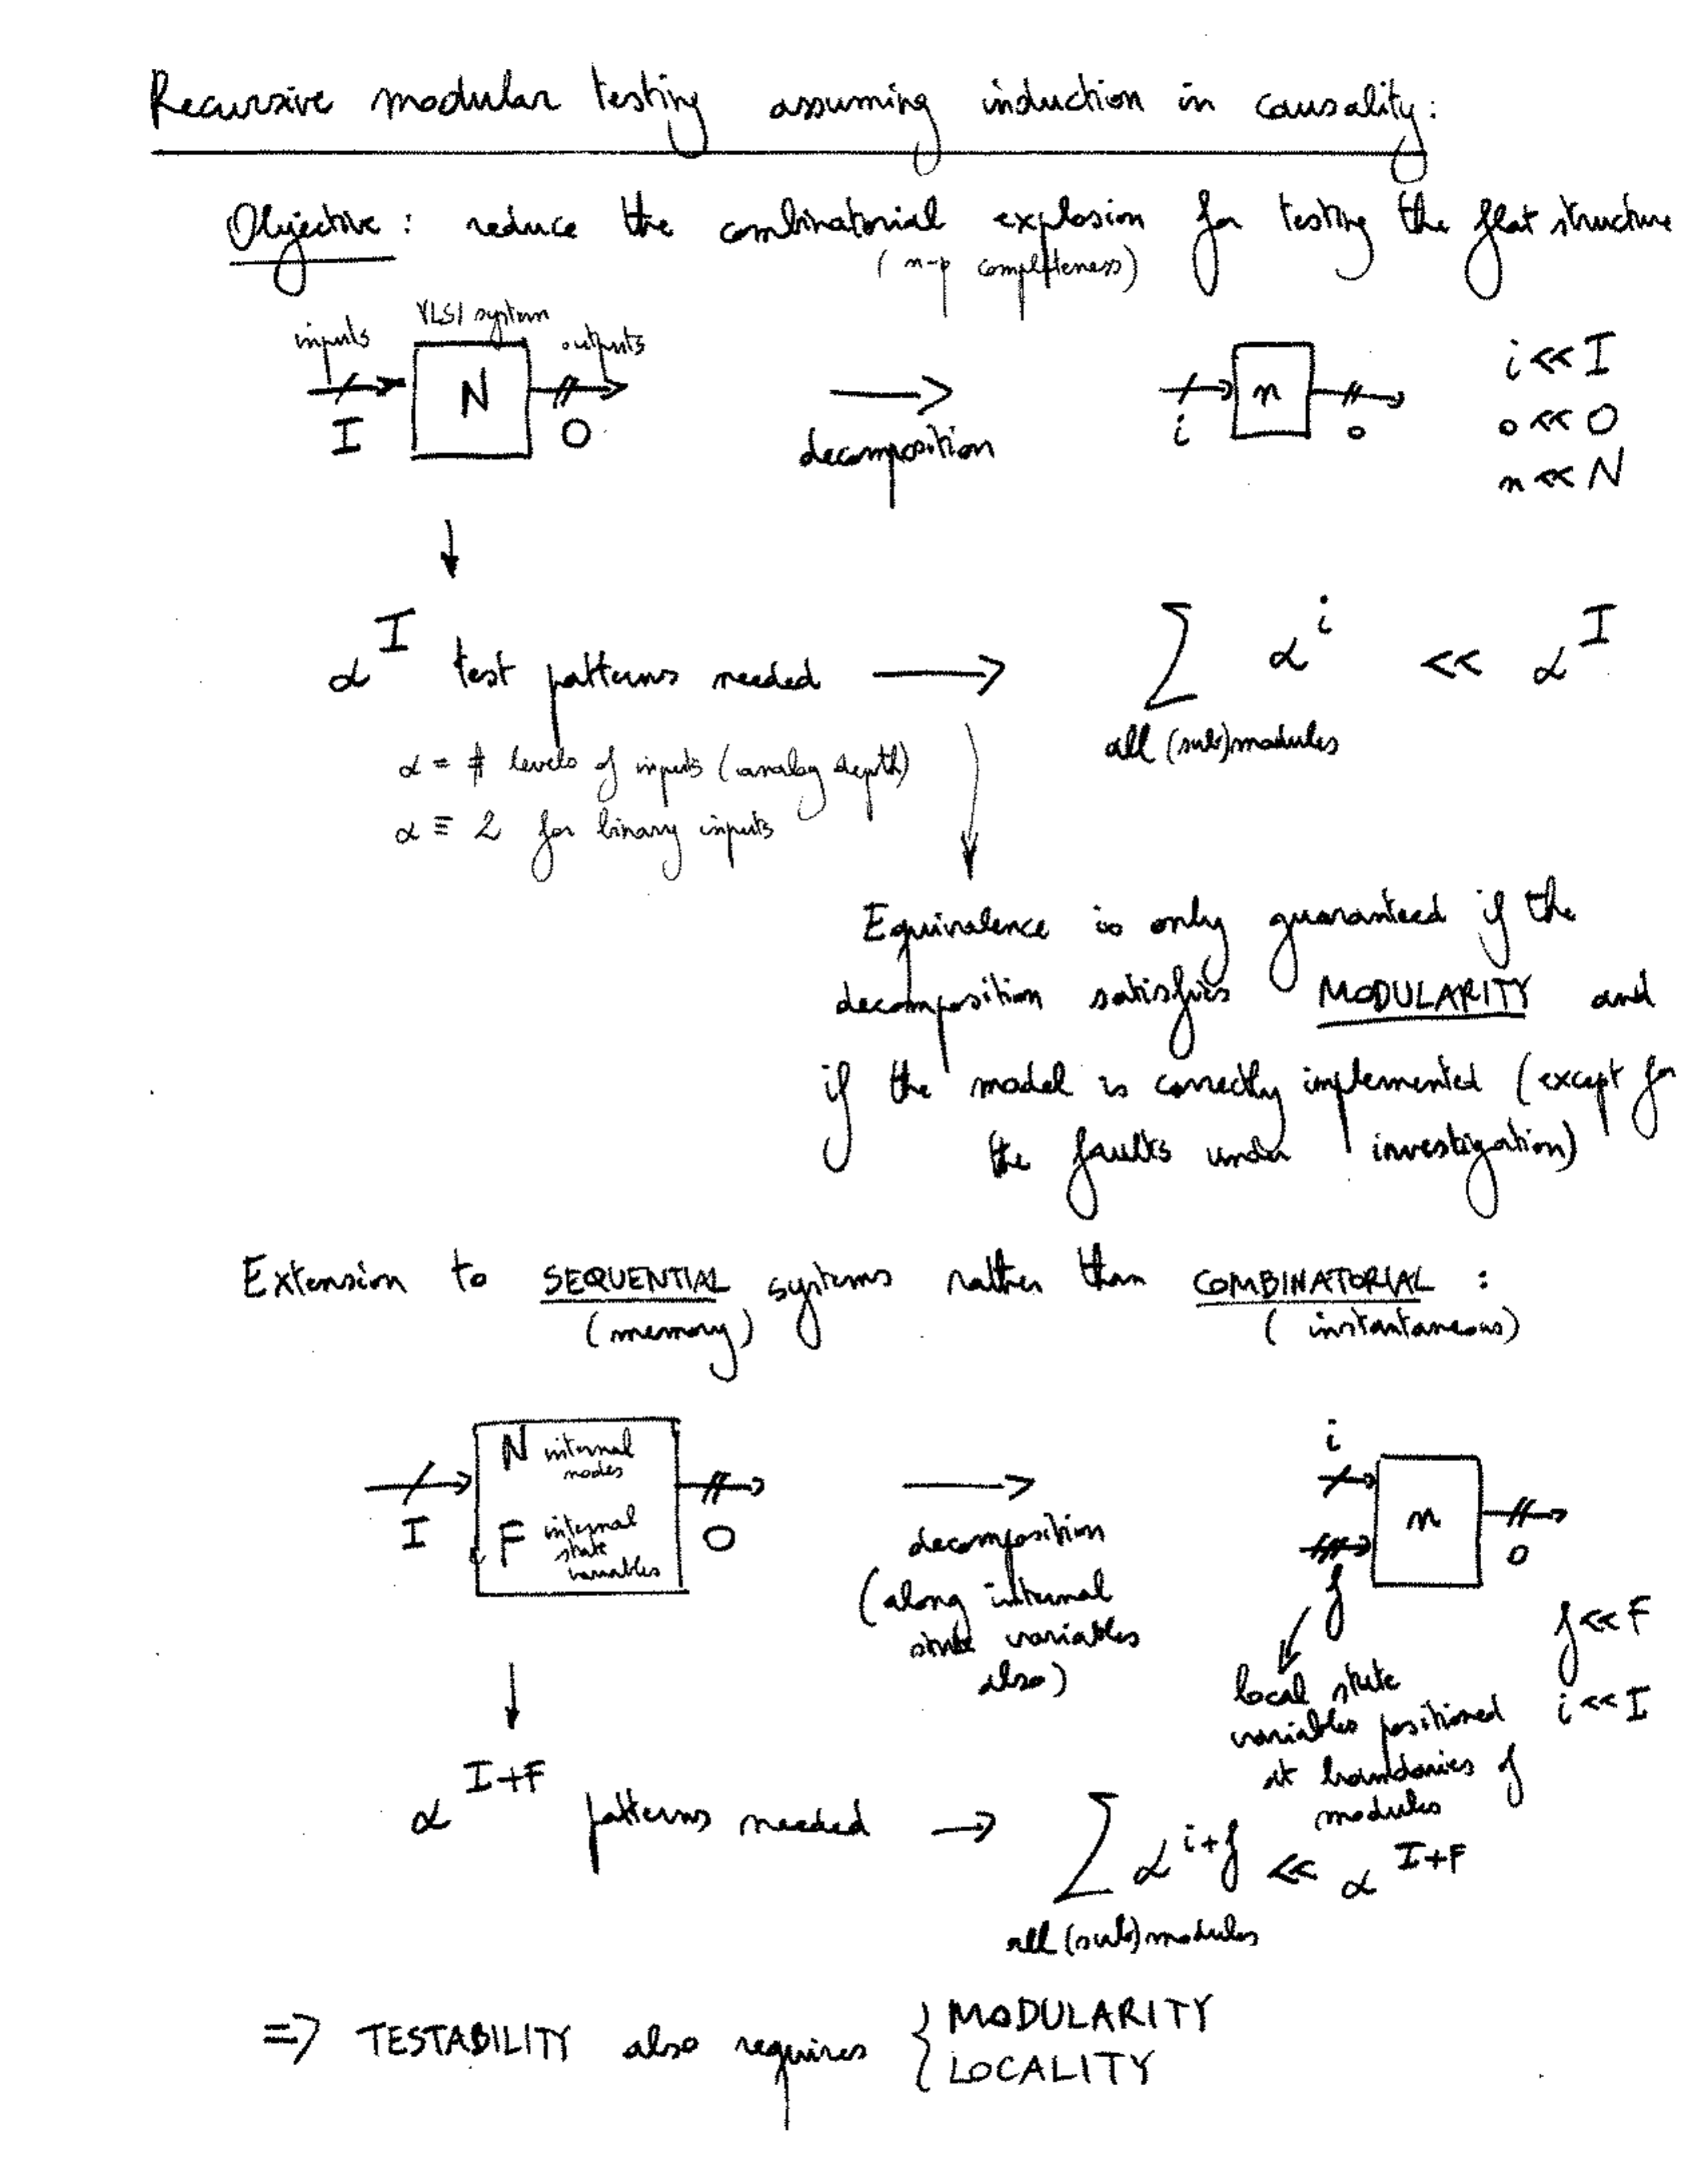 Recursive modular testing assuming induction in causality:
Objective: reduce the combinatorial explosion for testing the flat structure
(n-p completeness)
inputs VLSI system outputs
I N O
decomposition
i n o
i << I
o << O
n << N
α^I test patterns needed → Σ α^i << α^I
all (sub)modules
α = # levels of inputs (analog depth)
α ≡ 2 for binary inputs
Equivalence is only guaranteed if the
decomposition satisfies MODULARITY and
if the model is correctly implemented (except for
the faults under investigation)
Extension to SEQUENTIAL systems rather than COMBINATORIAL :
(memory) (instantaneous)
I N internal nodes O
F internal state variables
decomposition
(along internal
state variables
also)
i n o
f
f << F
i << I
local state
variables positioned
at boundaries of
modules
α^I+F patterns needed → Σ α^i+f << α^I+F
all (sub)modules
=> TESTABILITY also requires { MODULARITY
LOCALITY